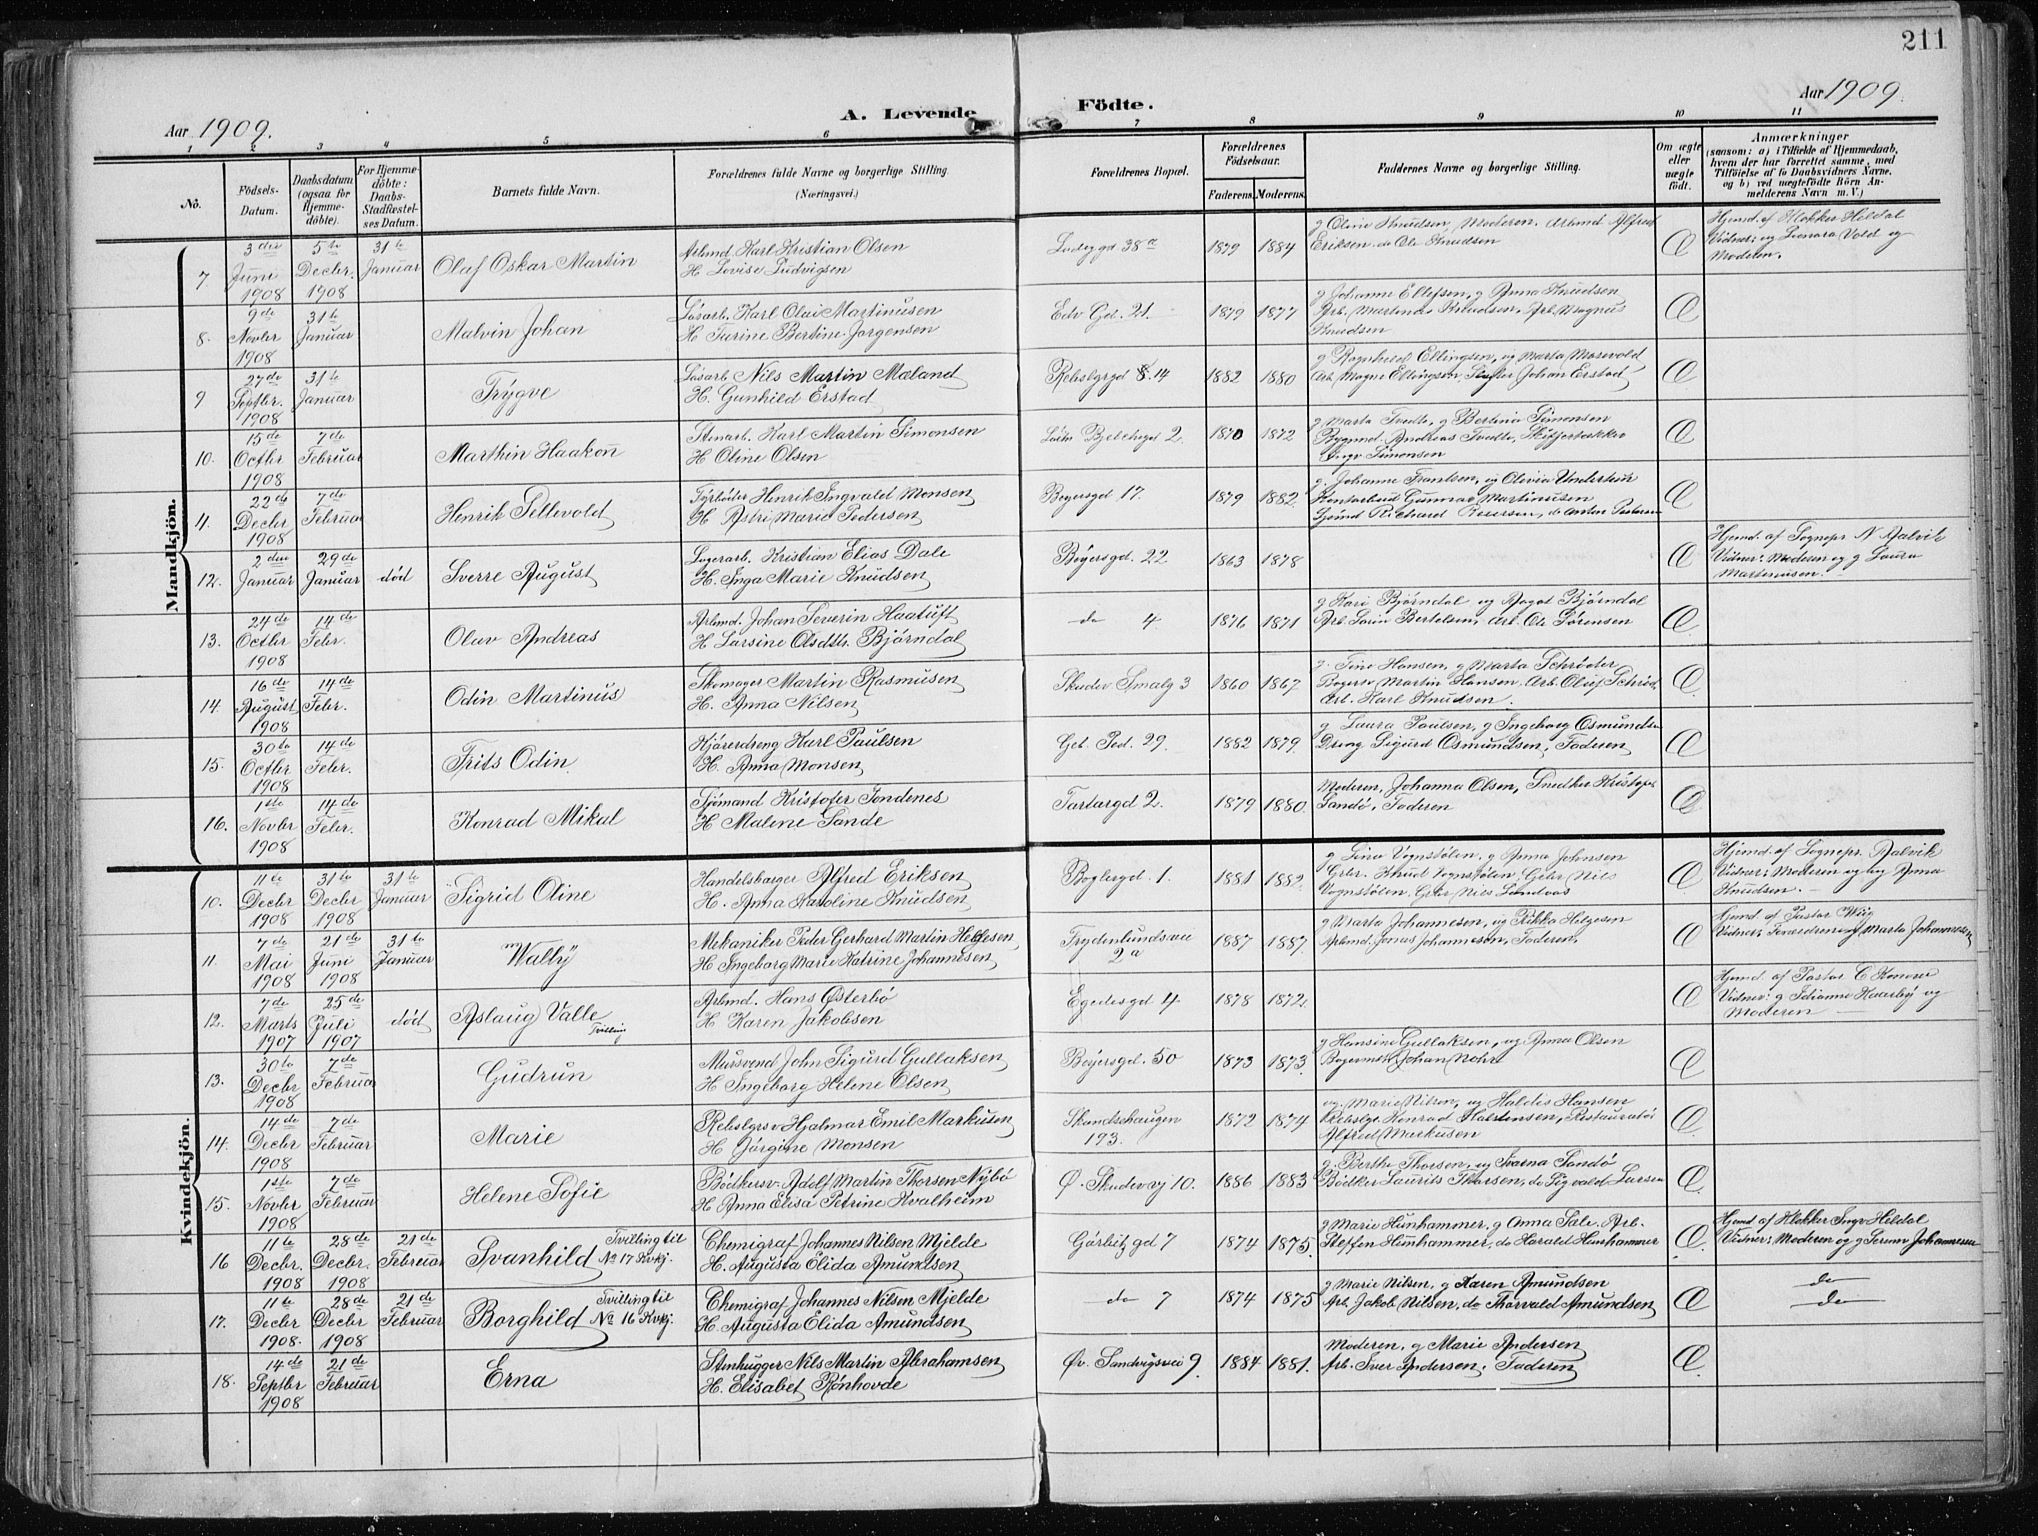 211
Aar 1909.
A. Levende Födte.
Aar 1909.
1 2 3 4 5 6 7 8 9 10 11
No.
Födsels-Datum.
Daabsdatum (ogsaa for Hjemmedöbte).
For Hjemmedöbte: Daabs-Stadfæstelses Datum.
Barnets fulde Navn.
Forældrenes fulde Navne og borgerlige Stilling (Næringsvei.)
Forældrenes Bopæl.
Forældrenes Födselsaar.
Faderens. Moderens.
Faddernes Navne og borgerlige Stilling.
Om ægte eller uægte födt.
Anmærkninger
(saasom: a) i Tilfælde af Hjemmedaab, hvem der har forrettet samme, med Tilföielse af to Daabsvidners Navne, og b) ved uægtefödte Börn Anmelderens Navn m. V.)
Mandkjön.
7 3die Juni 1908 5te Decbr. 1908 31te Januar Olaf Oskar Martin
Arbmd Karl Kristian Olsen
H. Lovise Ludvigsen
38a 1879 1884
g Oline Knudsen, Moderen. Arbmd Alfred
Eriksen, do Ole Knudsen
Æ
Hjemd. af Klokker Heldal
Vidner: og Leonora Vold og
Moderen.
8. 9de Novbr 1908 31te Januar Malvin Johan
Løsarb. Karl Olai Martinusen
H Turine Bertine Jørgensen
Edv Gd. 21. 1879 1877
g Johanne Ellefsen, g Anna Knudsen
Arb. Martinus Knudsen, Arb. Magnus
Knudsen
Æ
9 27de Septbr. 1908 31te Januar Trygve
Løsarb Nils Martin Mæland
H. Gunhild Erstad
Rebslgrgd 14 1882 1880
g Ragnhild Ellingsen, ug Marta
Arb. Magne Ellingsen, Johan Erstad
Æ
10. 15de Octbr 1908 7de Februar Marthin Haakon
Stenarb. Karl Martin Simonsen
H Oline Olsen
2. 1870 1872
g Marta Tvedte, g Bertine Simonsen
Bygmd. Andreas Tvedte,
Ingv Simonsen
Æ
11. 22de Decbr 1908 7de Februar Henrik Pellevold
Fyrbøder Henrik Ingvald Monsen
H Astri Marie Pedersen
Bøyersgd 17. 1879 1882.
g. Johanne Frantsen, ug Olivia
Kontorbud Gunnar Martinusen
Sjømd Richard do Anton Pedersen
Æ
12. 2den Januar 29de Januar død Sverre August
Lagerarb. Kristian Elias Dale
H. Inga Marie Knudsen
Bøyersgd. 22 1863 1878
Æ
Hjemd. af Sognepr N Aalvik
Vidner: Moderen og g Laura
Martinusen.
13. 24de Octbr 1908 14de Febr. Olav Andreas
Arbmd. Johan Severin Haatuft
H Larsine Olsdtr. Bjørndal
do 4 1876 1871
g Kari Bjørndal ug Aagot Bjørndal
Arb. Lovin Bertelsen, Arb. Ole Sørensen
Æ
14. 16de August 1908 14de Febr. Odin Martinus
Skomager Martin Rasmusen
H. Anna Nilsen
Skudev Smalg 3 1860 1867
g. Tine Hansen, g Marta Schrøder
Bagersv Martin Hansen. Arb. Oluf Schrød.
Arb. Karl Knudsen.
Æ
15. 30te Octbr. 1908 14de Febr. Frits Odin
Kjøredreng Karl Paulsen
H. Anna Monsen
Geb. Ped. 29. 1882 1879
g Laura Paulsen, g Ingeborg Osmundsen
Dreng Sigurd Osmundsen, Faderen
Æ
16. 1ste Novbr 1908 14de Febr. Konrad Mikal
Sjømand Kristofer Tondenes
H Malene Sande
Tartargd 2. 1879 1880.
Moderen, Johanna Olsen, Snedker Kristofer
Sandø, Faderen
Æ
Kvindekjön.
10. 11te Decbr 1908 31te Decbr 1908 31te Januar Sigrid Oline
Handelsbager Alfred Eriksen
H. Anna Karoline Knudsen
Boglergd. 1. 1881 1882.
g Lina Vognstølen. g Anna Johnsen
Gbr. Knud Vognstølen, Gbr Nils
Vognstølen, Gbr Nils Sandvas
Æ
Hjemd. af Sognepr. Aalvik
Vidner: Moderen og ug Anna
Knudsen.
11. 7de Mai 1908 21de Juni 1908 31te Januar Walby
Mekaniker Peder Gerhard Martin Helgesen
H Ingeborg Marie Katrine Johannesen
Frydenlundsvei 2a 1887 1887.
g Marta Johannesen, ug Rikka Helgesen
Arbmd. Jonas Johannesen, Faderen.
Æ
Hjemd. af Pastor Wiig
Vidner: og Marta Johannesen
12. 7de Marts 1907 25de Juli 1907 død Aslaug Valle Tvilling
Arbmd. Hans Østerbø
H Karen Jakobsen
Egedesgd 4 1878 1872.
Æ
Hjemd. af Pastor C Konow
Vidner: g Johanne og
Moderen
13. 30te Decbr 1908 7de Februar Gudrun
Mursvend John Sigurd Gullaksen
H Ingeborg Helene Olsen
Bøyersgd. 50 1873 1873.
g Hansine Gullaksen, ug Anna Olsen
Bagermstr Johan Nohr
Æ
14. 14de Decbr 1908 7de Februar Marie
Rebslgrsv Hjalmar Emil Markusen
H Jørgine Monsen
Skandsehaugen 193. 1872 1874
ug. Marie Nilsen, ug Haldis Hansen
Rebslgr. Konrad Halstensen, Restauratør
Alfred Markusen
Æ
15. 1ste Novbr 1908 7de Februar Helene Sofie
Bødkersv. Adolf Martin Thorsen Nybø
H Anna Elisa Petrine Kvalheim
Ø. Skudevsg 10. 1886 1883
g. Berthe Thorsen, ug Svæna Sandø
Bødker Laurits Thorsen, do Sigvald Larsen
Æ
16 11te Decbr. 1908 28de Decbr. 1908 21de Februar Svanhild Tvilling til No 17 Kvkj.
Chemigraf Johannes Nilsen Mjelde
H. Augusta Elida Amundsen
Gørbitzgd 7 1874 1875.
g Marie Hunhammer, g Anna Sale. Arb.
Steffen Hunhammer, do Harald Hunhammer
Æ
Hjemd af Klokker Ingv Heldal
Vidner: Moderen og g Serum Johannesen
17. 11te Decbr 1908. 28de Decbr 1908 21de Februar Borghild Tvilling til No 16 Kvkj.
Chemigraf Johannes Nilsen Mjelde
H. Augusta Elida Amundsen
do 7 1874 1875
g Marie Nilsen, g Karen Amundsen
Arb. Jakob Nilsen, do Thorvald Amundsen
Æ
do
do
18. 14de Septbr 1908 21de Februar Erna
Stenhugger Nils Martin Abrahamsen
H. Elisabet Rønhovde
Øv. Sandvigsvei 9. 1884 1881.
Moderen, g Marie Andersen
Arb. Iver Andersen, Faderen
Æ